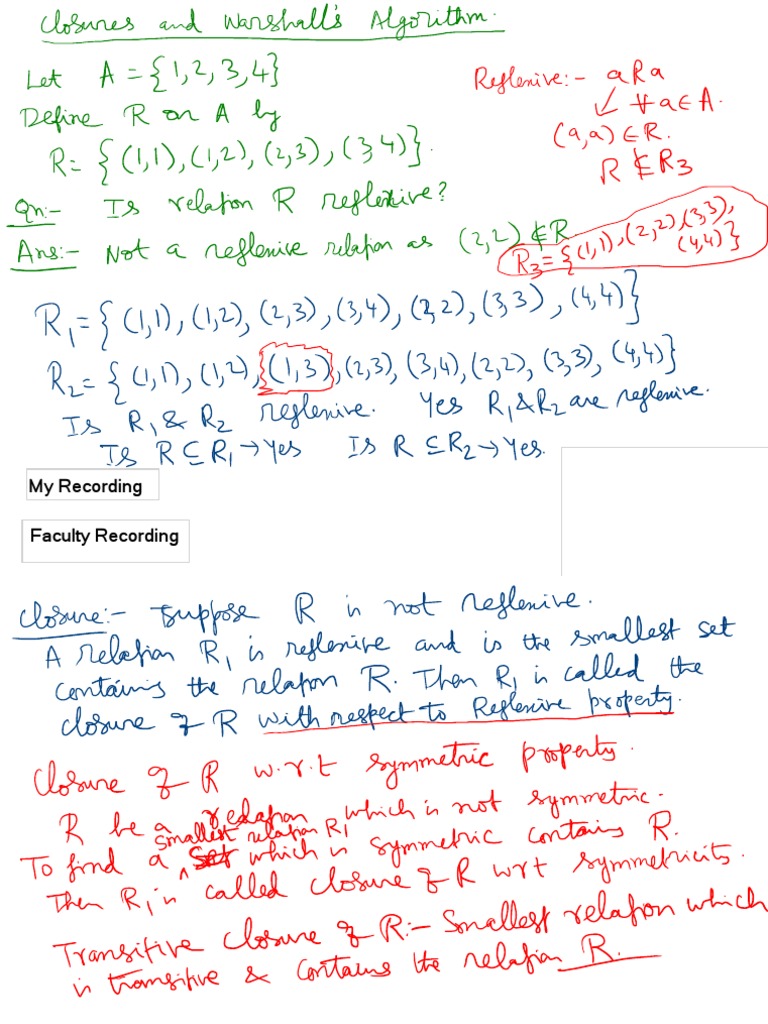 Closures and Warshall's Algorithm.
Let A = {1,2,3,4}
Define R on A by
R = {(1,1), (1,2), (2,3), (3,4)}.
Reflexive:- aRa
↙ ∀ a ∈ A.
(a,a) ∈ R.
R ⊈ R₃
Qn:- Is relation R reflexive?
Ans:- Not a reflexive relation as (2,2) ∉ R
R₃ = {(1,1), (2,2), (3,3),
(4,4)}
R₁ = {(1,1), (1,2), (2,3), (3,4), (2,2), (3,3), (4,4)}
R₂ = {(1,1), (1,2), (1,3), (2,3), (3,4), (2,2), (3,3), (4,4)}
Is R₁ & R₂ reflexive. Yes R₁ & R₂ are reflexive.
Is R ⊆ R₁ → Yes Is R ⊆ R₂ → Yes.
My Recording
Faculty Recording
Closure:- Suppose R is not reflexive.
A relation R₁ is reflexive and is the smallest set
contains the relation R. Then R₁ is called the
closure of R with respect to Reflexive property.
Closure of R w.r.t symmetric property.
R be a relation which is not symmetric.
smallest relation R₁
To find a set which is symmetric contains R.
Then R₁ is called closure of R wrt symmetricits.
Transitive closure of R:- Smallest relation which
is transitive & contains the relation R.